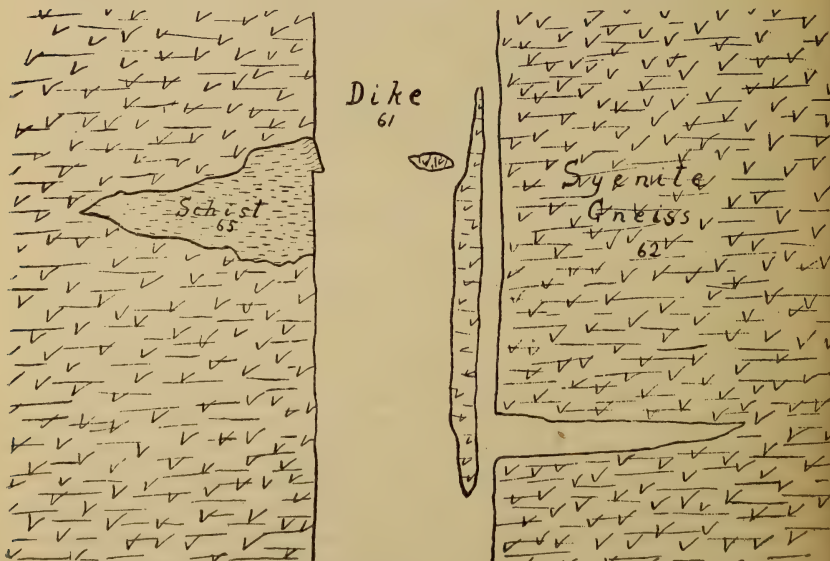 Dike
61
Schist
65
Syenite
Gneiss
62